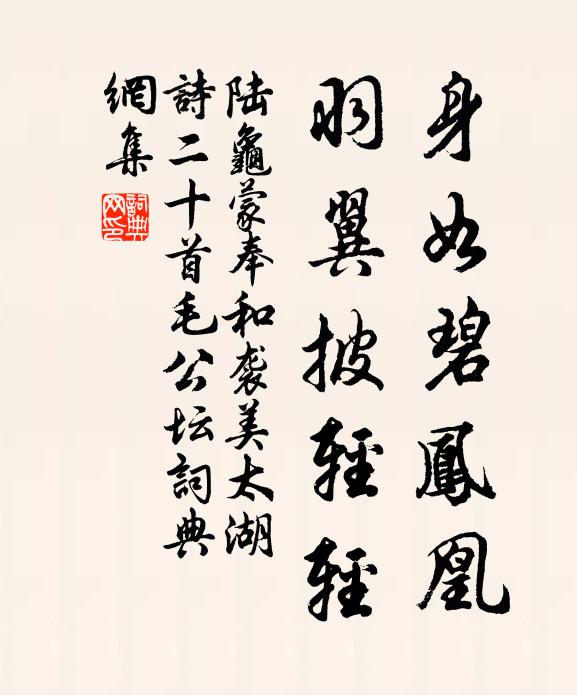 身如碧鳳凰
羽翼披輕輕
陆龜蒙奉和袭美太湖
詩二十首毛公坛詞典
網集
詞典网印